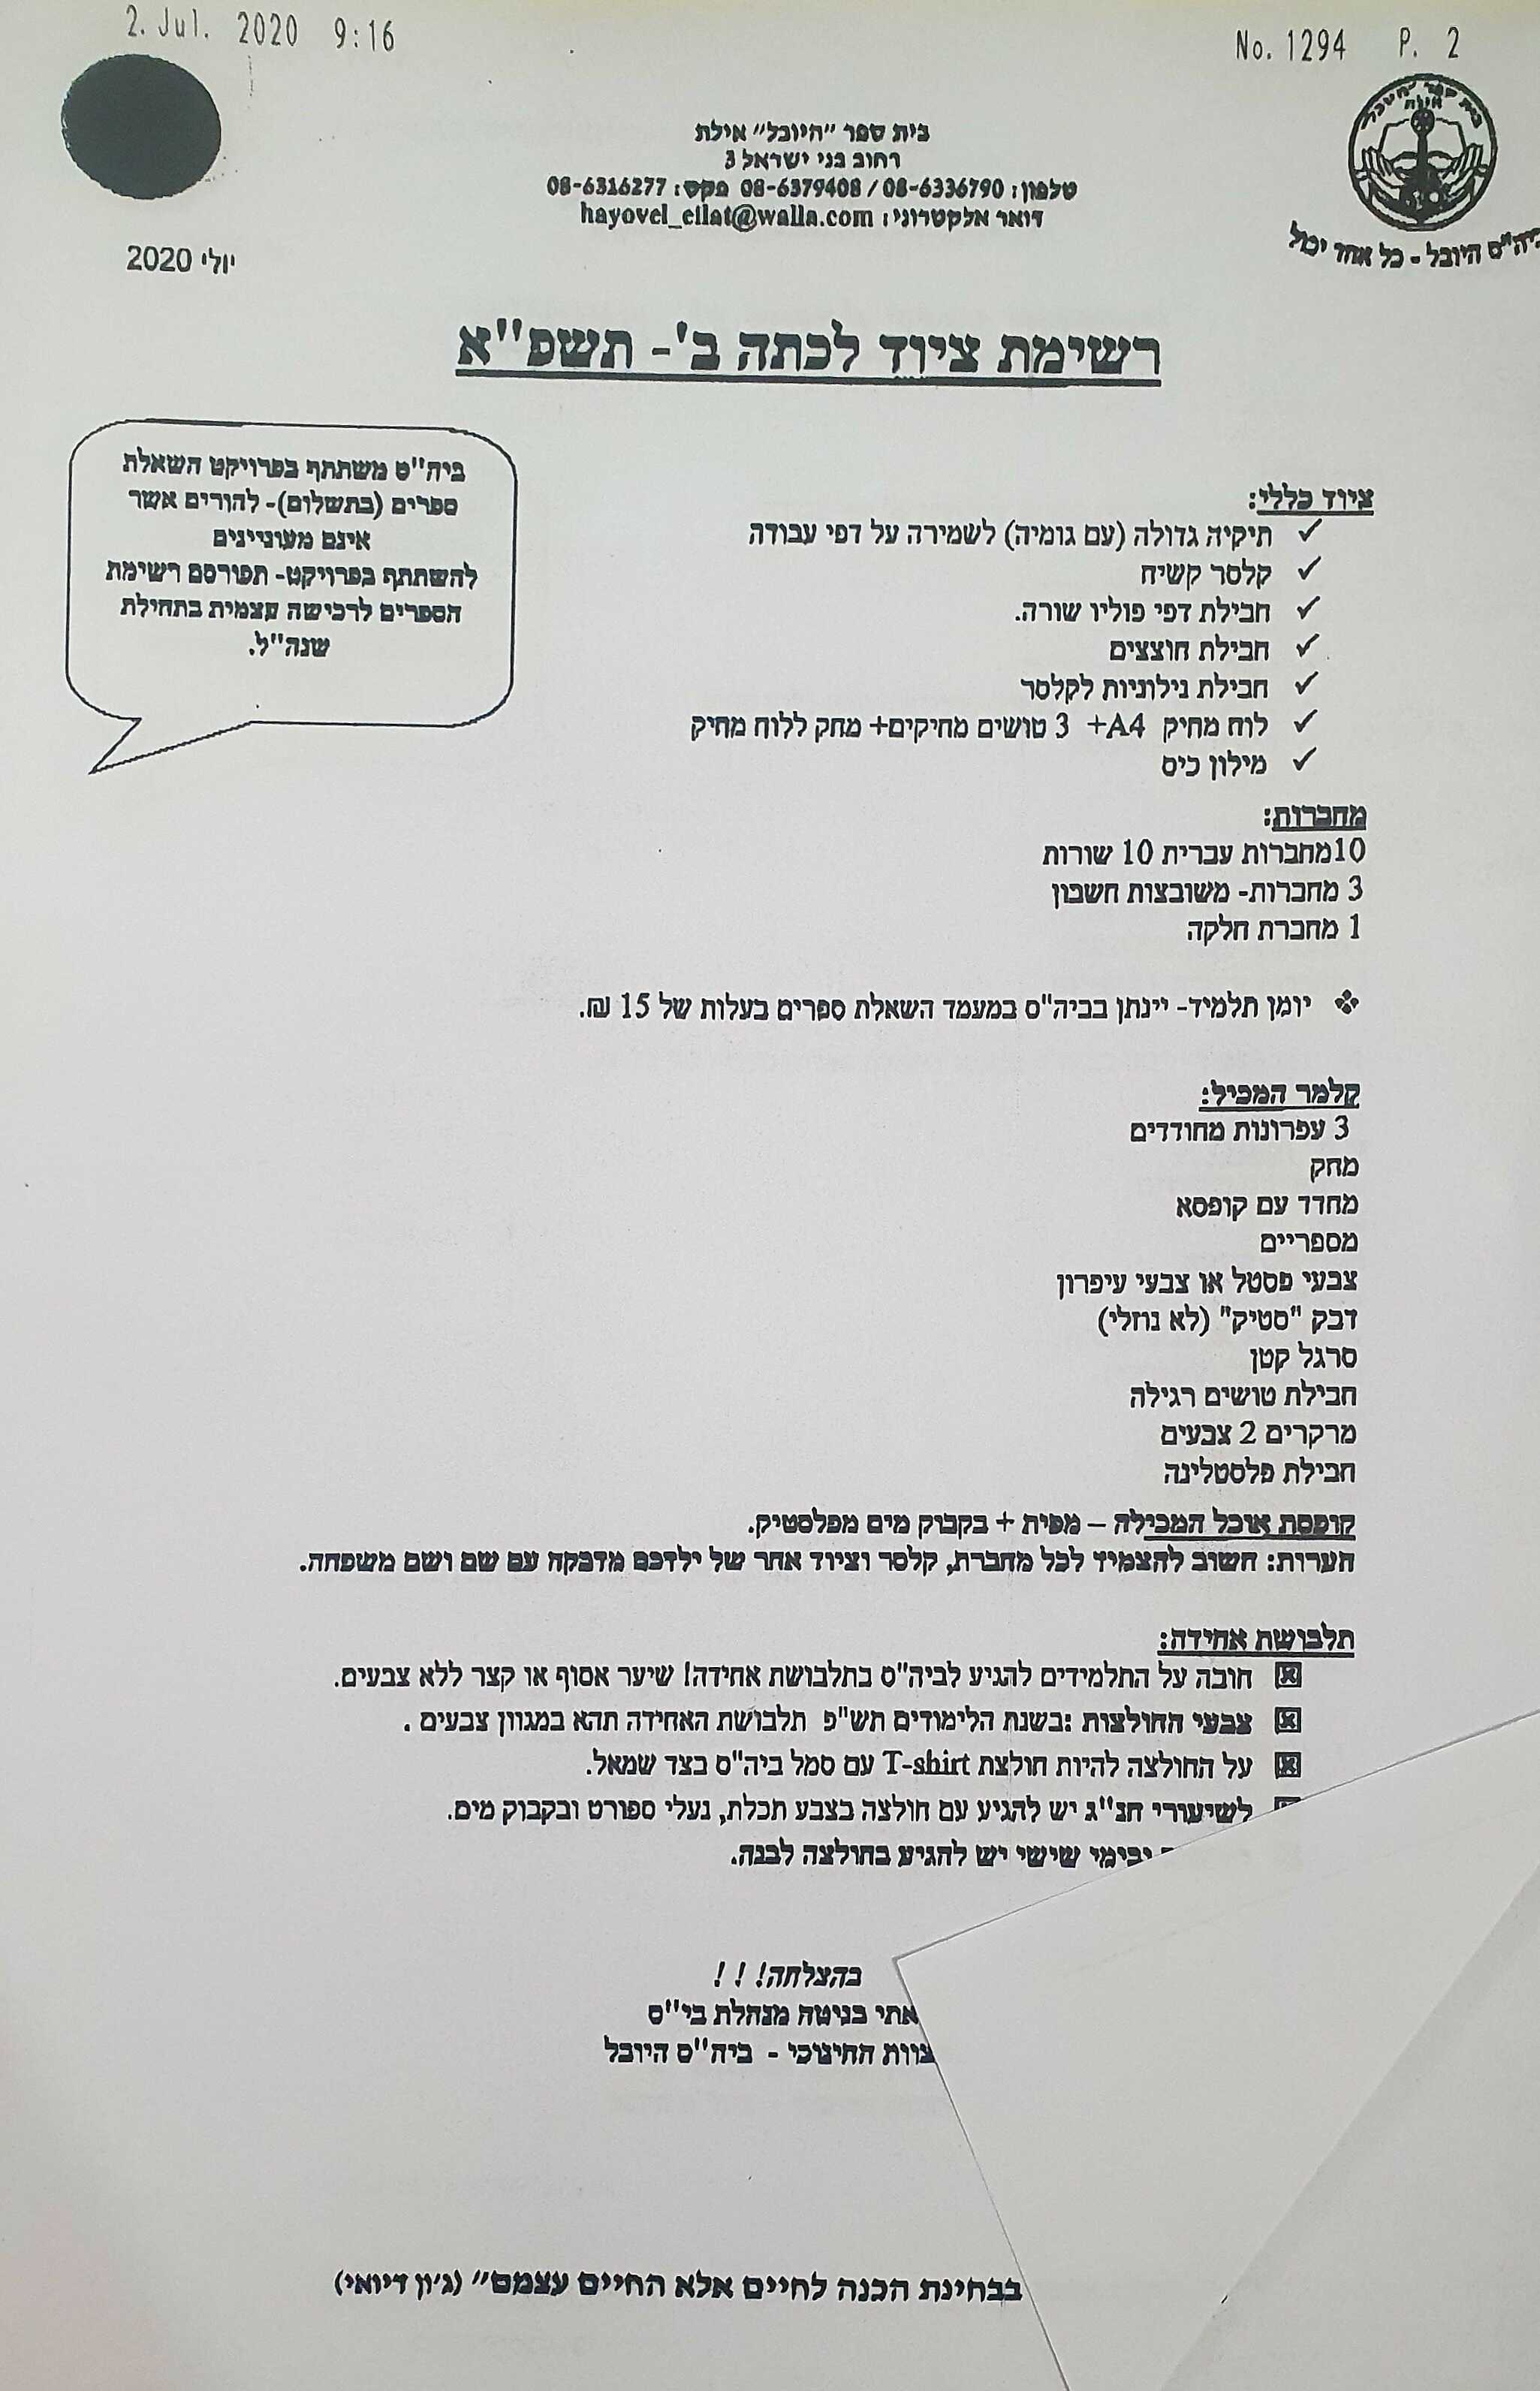 2. Jul. 2020 9:16
No. 1294 P. 2
בית ספר "היובל" אילת
רחוב בני ישראל 3
טלפון: 08-6336790 / 08-6379408 פקס: 08-6316277
דואר אלקטרוני: hayovel_eilat@walla.com
אילת
ביה"ס היובל - כל אחד יכול
יולי 2020
רשימת ציוד לכתה ב'- תשפ"א
ביה"ס משתתף בפרויקט השאלת
ספרים (בתשלום)- להורים אשר
אינם מעוניינים
להשתתף בפרויקט- תפורסם רשימת
הספרים לרכישה עצמית בתחילת
שנה"ל.
ציוד כללי:
✓ תיקיה גדולה (עם גומיה) לשמירה על דפי עבודה
✓ קלסר קשיח
✓ חבילת דפי פוליו שורה.
✓ חבילת חוצצים
✓ חבילת ניילוניות לקלסר
✓ לוח מחיק A4+ 3 טושים מחיקים+ מחק ללוח מחיק
✓ מילון כיס
מחברות:
10מחברות עברית 10 שורות
3 מחברות- משובצות חשבון
1 מחברת חלקה
❖ יומן תלמיד- יינתן בביה"ס במעמד השאלת ספרים בעלות של 15 ₪.
קלמר המכיל:
3 עפרונות מחודדים
מחק
מחדד עם קופסא
מספריים
צבעי פסטל או צבעי עיפרון
דבק "סטיק" (לא נוזלי)
סרגל קטן
חבילת טושים רגילה
מרקרים 2 צבעים
חבילת פלסטלינה
קופסת אוכל המכילה – מפית + בקבוק מים מפלסטיק.
הערות: חשוב להצמיד לכל מחברת, קלסר וציוד אחר של ילדכם מדבקה עם שם ושם משפחה.
תלבושת אחידה:
☒ חובה על התלמידים להגיע לביה"ס בתלבושת אחידה! שיער אסוף או קצר ללא צבעים.
☒ צבעי החולצות :בשנת הלימודים תש"פ תלבושת האחידה תהא במגוון צבעים .
☒ על החולצה להיות חולצת T-shirt עם סמל ביה"ס בצד שמאל.
לשיעורי חנ"ג יש להגיע עם חולצה בצבע תכלת, נעלי ספורט ובקבוק מים.
ובימי שישי יש להגיע בחולצה לבנה.
בהצלחה! ! !
אתי בניטה מנהלת בי"ס
צוות החינוכי - ביה"ס היובל
בבחינת הכנה לחיים אלא החיים עצמם" (ג'ון דיואי)